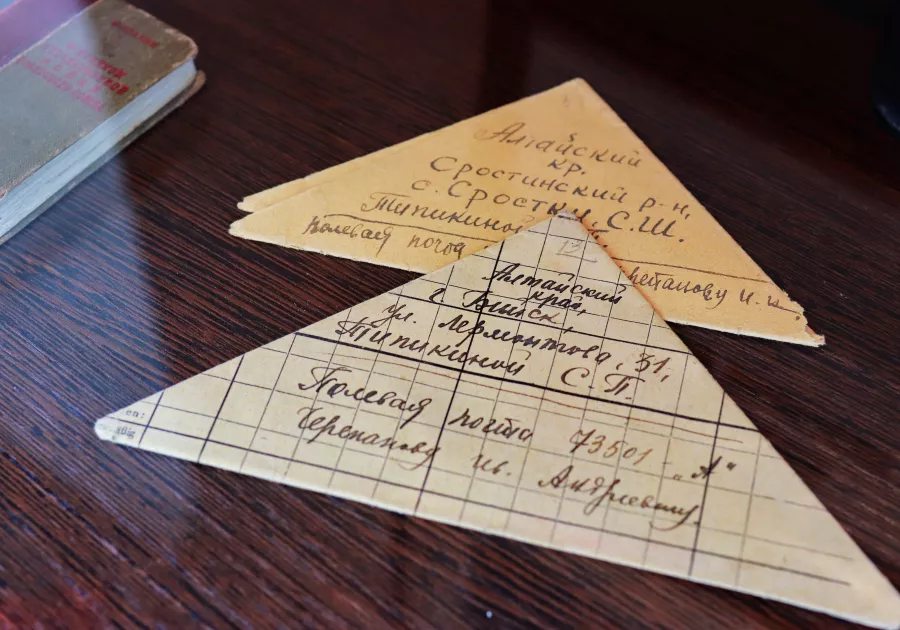 Алтайский
кр.
Сростинский р-н,
с. Сростки С.Ш.
Полевая почта
12
Алтайский
край,
г. Бийск,
ул. Лермонтова, 31,
Типикиной С.П.
Полевая почта 73501 - „А"
Черепанову Ив. Андреевичу.